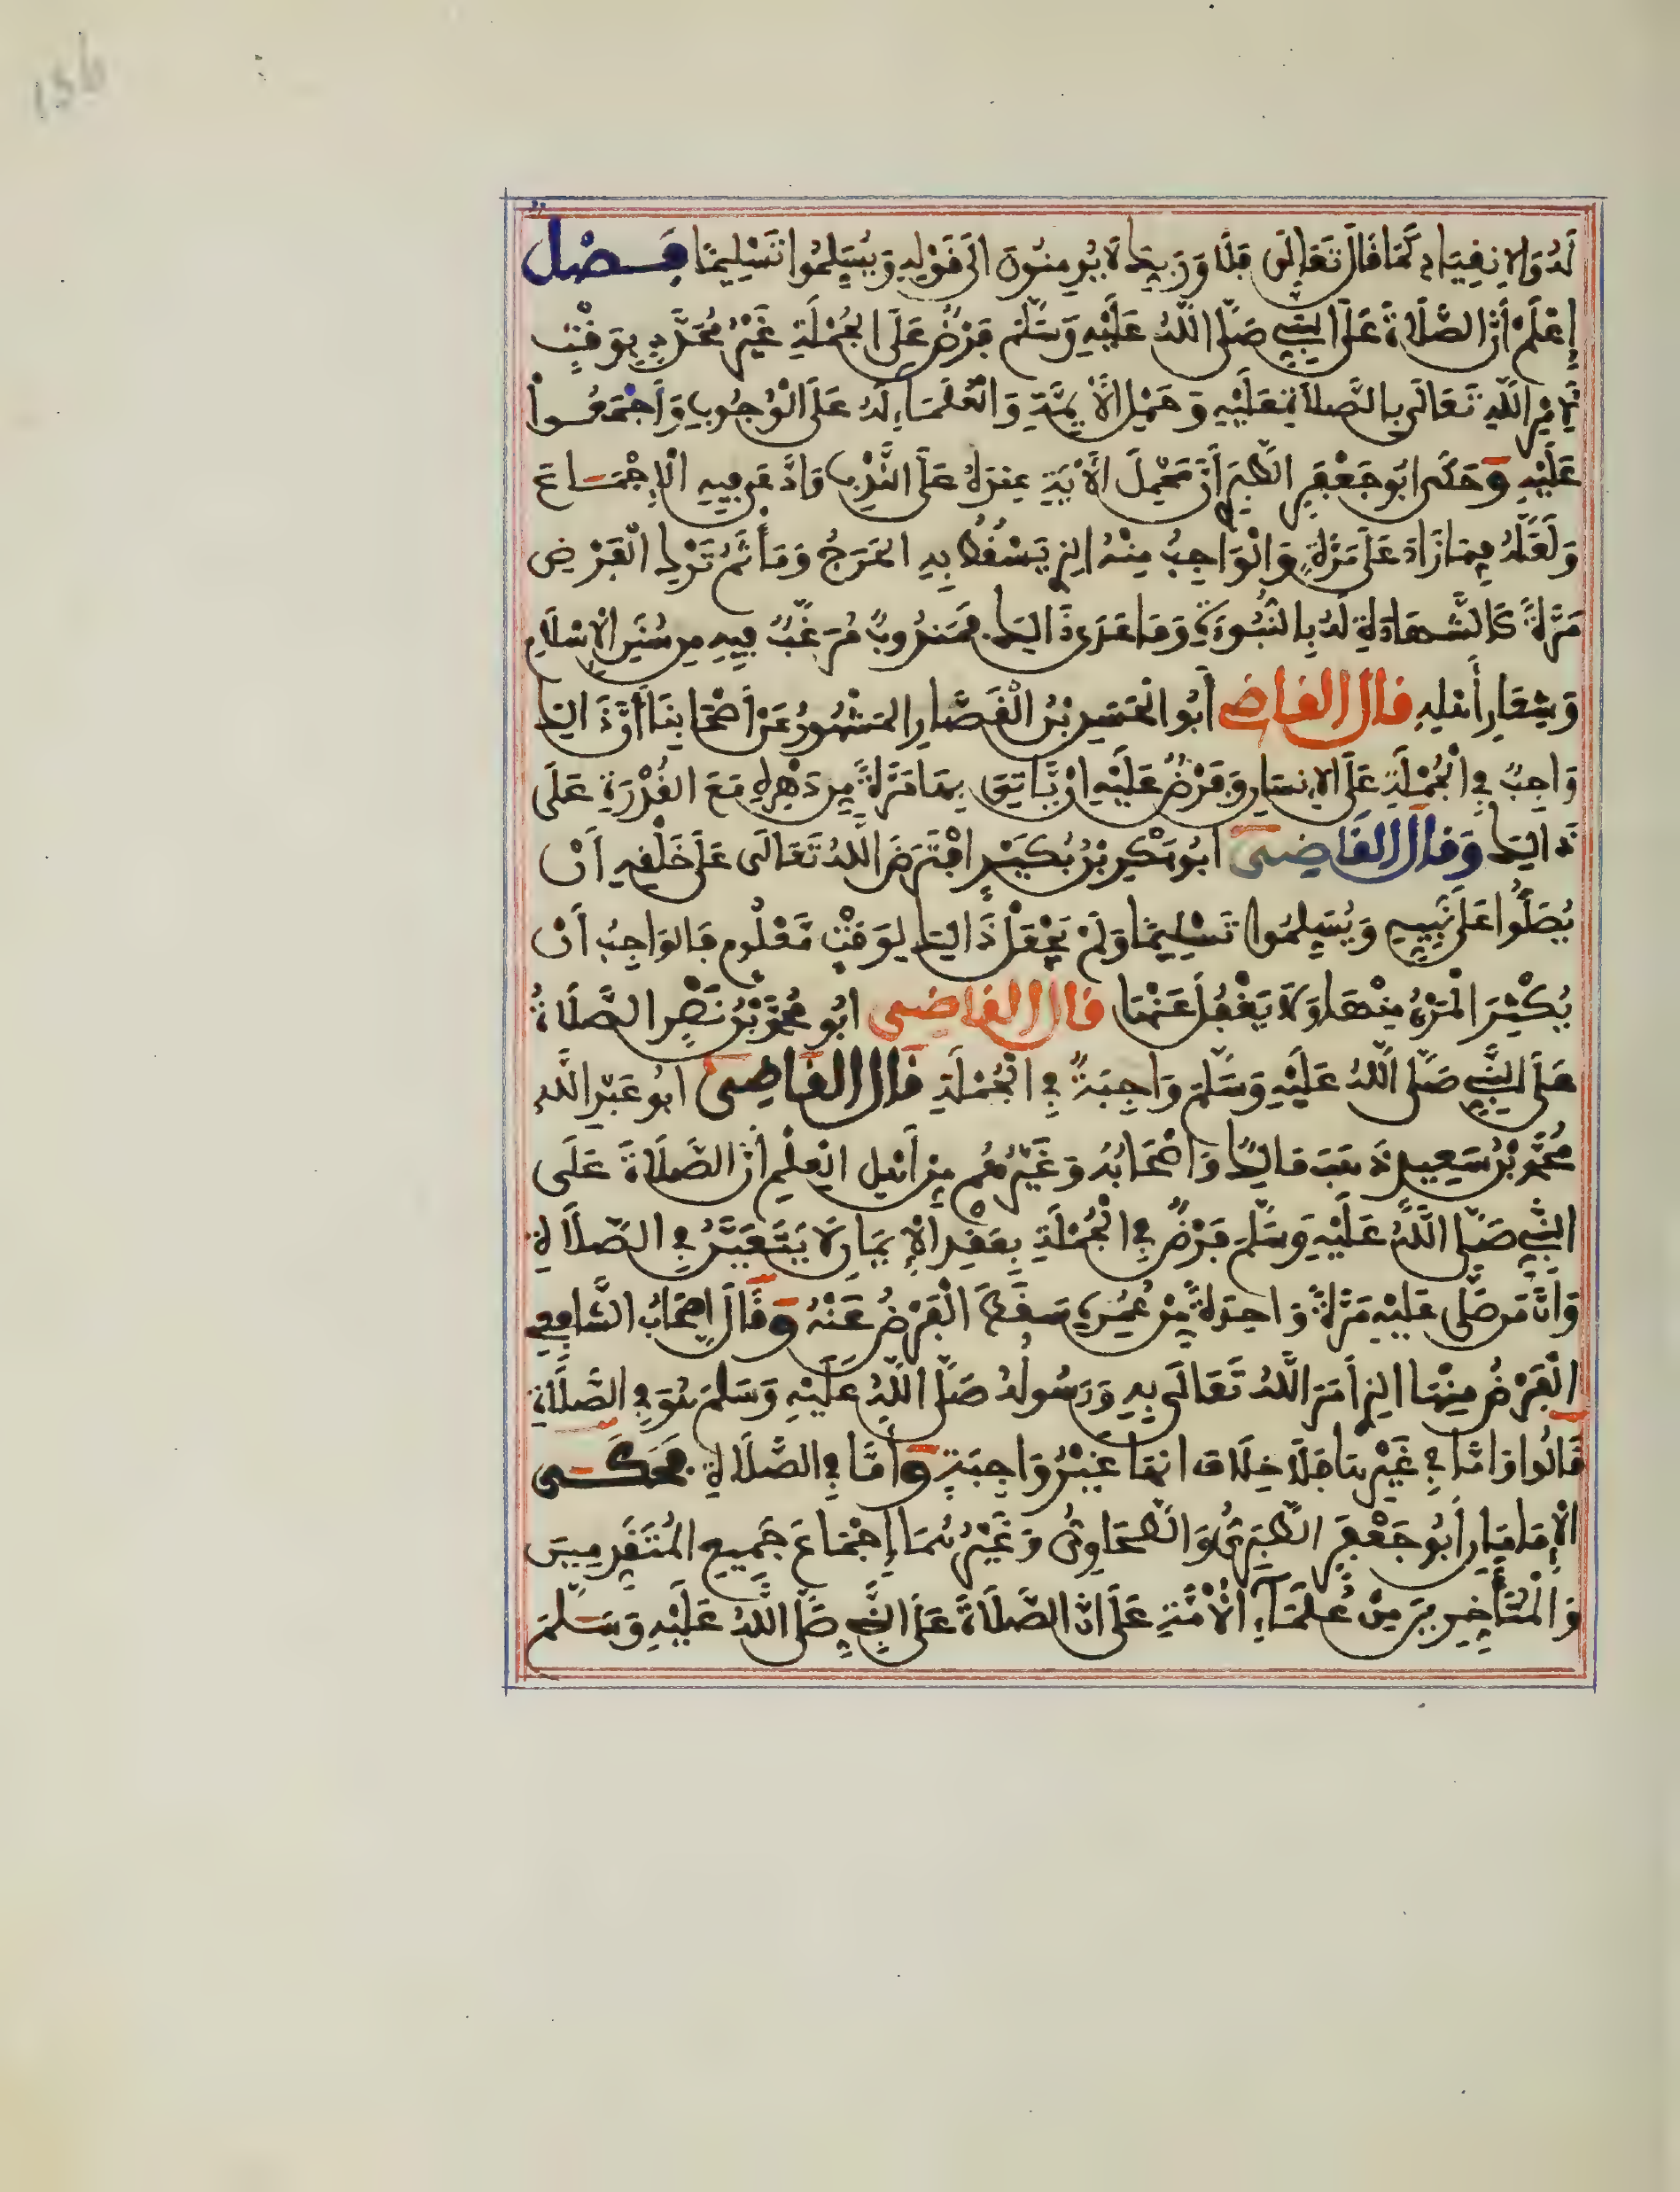 156
لَهُ وَالِانقِيَادِ كَمَا قَالَ تَعَالَى فَلَا وَرَبِّكَ لَا يُومِنُونَ الى قَوْلِهِ وَيُسَلِّمُوا تَسْلِيمًا فَصْل
إِعْلَمْ أَنَّ الصَّلَاةَ عَلَى النَّبِيِّ صَلَّى اللَّهُ عَلَيْهِ وَسَلَّمَ فَرْضٌ عَلَى الْجُمْلَةِ غَيْرُ مُحَدَّدٍ بِوَقْتٍ
لِأَمْرِ اللَّهِ تَعَالَى بِالصَّلَاةِ عَلَيْهِ وَحَمْلِ الْأَيِمَّةِ وَالْعُلَمَاءِ لَهُ عَلَى الْوُجُوبِ وَأَجْمَعُوا
عَلَيْهِ وَحَكَى أَبُو جَعْفَرٍ الطَّبَرِي أَنَّ مَحْمِلَ الْأَيَةِ عِندَهُ عَلَى النَّدْبِ وَادَّعَى فِيهِ الْإِجْمَاعَ
وَلَعَلَّهُ فِيمَا زَادَ عَلَى مَرَّةٍ وَالْوَاجِبُ مِنْهُ الذِي يَسْقُطُ بِهِ الْحَرَجُ وَمَأْثَمُ تَرْكِ الْفَرْضِ
مَرَّةً كَالشَّهَادَةِ لَهُ بِالنُّبُوءَةِ وَمَا عَدَى ذَالِكَ فَمَندُوبٌ مُرَغَّبٌ فِيهِ مِن سُنَنِ الْإِسْلَامِ
وَشِعَارِ أَهْلِهِ قال القاضي أَبُو الْحَسَنِ بْنُ الْقَصَّارِ الْمَشْهُورُ عَنْ أَصْحَابِنَا أَنَّ ذَالِكَ
وَاجِبٌ فِي الْجُمْلَةِ عَلَى الْإِنسَانِ وَفَرْضٌ عَلَيْهِ أَنْ يَّاتِيَ بِهَا مَرَّةً مِن دَهْرِهِ مَعَ الْقُدْرَةِ عَلَى
ذَالِكَ وَقَالَ الْقَاضِي أَبُو بَكْرِ بْنُ بُكَيْرٍ افْتَرَضَ اللَّهُ تَعَالَى عَلَى خَلْقِهِ أَنْ
يُصَلُّوا عَلَى نَبِيِّهِ وَيُسَلِّمُوا تَسْلِيمًا وَلَمْ يَجْعَلْ ذَالِكَ لِوَقْتٍ مَّعْلُومٍ فَالْوَاجِبُ أَنْ
يُكْثِرَ الْمَرْءُ مِنْهَا وَلَا يَغْفُلَ عَنْهَا قال القاضي أَبُو مُحَمَّدِ بْنُ نَصْرٍ الصَّلَاةُ
عَلَى النَّبِيِّ صَلَّى اللَّهُ عَلَيْهِ وَسَلَّمَ وَاجِبَةٌ فِي الْجُمْلَةِ قَالَ الْقَاضِي أَبُو عَبْدِ اللَّهِ
مُحَمَّدُ بْنُ سَعِيدٍ ذَهَبَ مَالِكٌ وَأَصْحَابُهُ وَغَيْرُهُم مِنْ أَهْلِ الْعِلْمِ أَنَّ الصَّلَاةَ عَلَى
النَّبِيِّ صَلَّى اللَّهُ عَلَيْهِ وَسَلَّمَ فَرْضٌ فِي الْجُمْلَةِ بِعَقْدِ الْإِيمَانِ لَا يَتَعَيَّنُ فِي الصَّلَاةِ
وَأَنَّ مَن صَلَّى عَلَيْهِ مَرَّةً وَاحِدَةً مِنْ عُمُرِهِ سَقَطَ الْفَرْضُ عَنْهُ وَقَالَ أَصْحَابُ الشَّافِعِي
الْفَرْضُ مِنْهَا الذِي أَمَرَ اللَّهُ تَعَالَى بِهِ وَرَسُولُهُ صَلَّى اللَّهُ عَلَيْهِ وَسَلَّمَ هُوَ فِي الصَّلَاةِ
قَالُوا وَأَمَّا فِي غَيْرِهَا فَلَا خِلَافَ أَنَّهَا غَيْرُ وَاجِبَةٍ وَأَمَّا فِي الصَّلَاةِ فَحَكَى
الْإِمَامَانِ أَبُو جَعْفَرٍ الطَّبَرِيُّ وَالطَّحَاوِيُّ وَغَيْرُهُمَا إِجْمَاعَ جَمِيعِ الْمُتَقَدِّمِينَ
وَالْمُتَأَخِّرِينَ مِنْ عُلَمَاءِ الْأُمَّةِ عَلَى أَنَّ الصَّلَاةَ عَلَى النَّبِيِّ صَلَّى اللَّهُ عَلَيْهِ وَسَلَّمَ